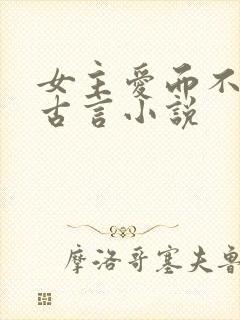 女主爱而不
古言小说
摩洛哥塞夫鲁